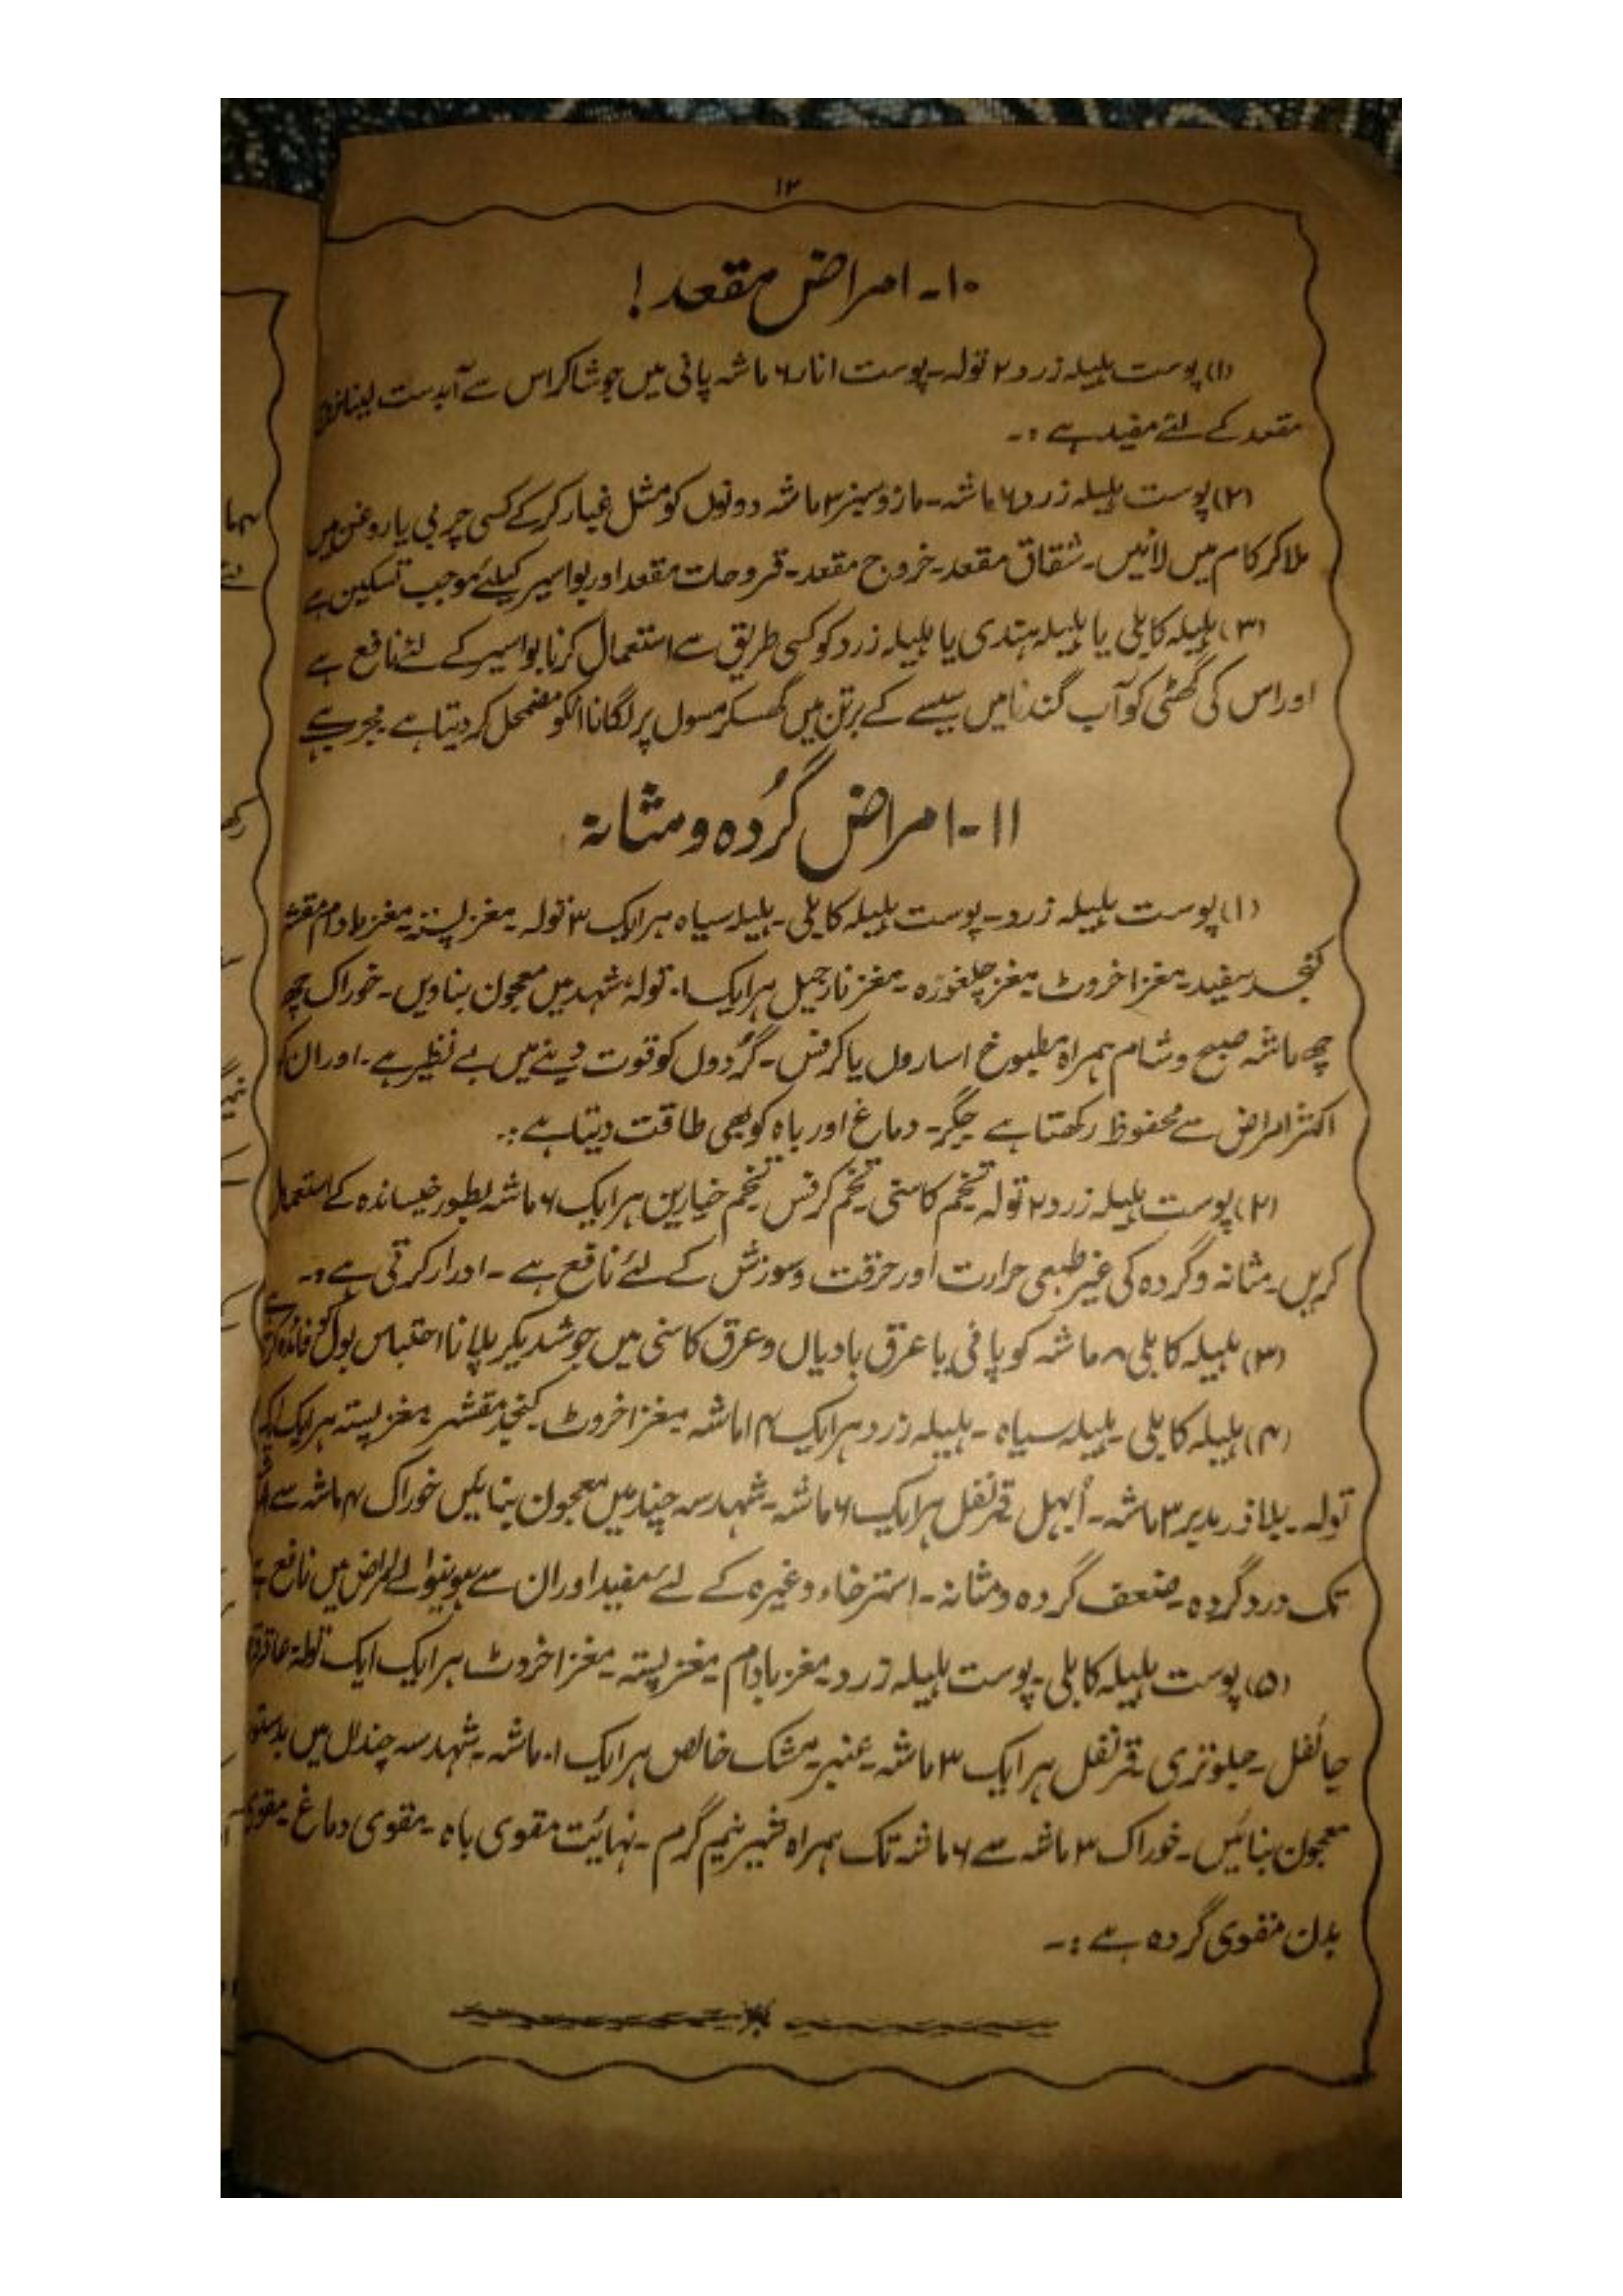 ۱۲
۱۰۔ امراض مقعد!
(۱) پوست ہلیلہ زرد ۲ تولہ۔ پوست انار ۶ ماشہ پانی میں جوشا کر اس سے آبدست لینا خروج
مقعد کے لئے مفید ہے :۔
(۲) پوست ہلیلہ زرد ۶ ماشہ۔ مازو سبز ۲ ماشہ دونوں کو مثل غبار کر کے کسی چربی یا روغن میں
ملا کر کام میں لائیں۔ شقاق مقعد۔ خروج مقعد۔ قروحات مقعد اور بواسیر کیلئے موجب تسکین ہے
(۳) ہلیلہ کابلی یا ہلیلہ ہندی یا ہلیلہ زرد کو کسی طریق سے استعمال کرنا بواسیر کے لئے نافع ہے
اور اس کی گھٹی کو آب گندنا میں سیسے کے برتن میں گھسکر مسوں پر لگانا انکو مضمحل کر دیتا ہے۔ مجرب ہے
۱۱۔ امراض گُردہ و مثانہ
(۱) پوست ہلیلہ زرد۔ پوست ہلیلہ کابلی۔ ہلیلہ سیاہ ہر ایک ۳ تولہ۔ مغز پستہ۔ مغز بادام مقشر
کنجد سفید۔ مغز اخروٹ۔ مغز چلغوزہ۔ مغز نارجیل ہر ایک ۱۰ تولہ شہد میں معجون بناویں۔ خوراک چھ
چھ ماشہ صبح و شام ہمراہ مطبوخ اسارون یا کرفس۔ گُردوں کو قوت دینے میں بے نظیر ہے۔ اور ان کو
اکثر امراض سے محفوظ رکھتا ہے جگر۔ دماغ اور باہ کو بھی طاقت دیتا ہے :.
(۲) پوست ہلیلہ زرد ۲ تولہ تخم کاسنی تخم کرفس تخم خیارین ہر ایک ۶ ماشہ بطور خیساندہ کے استعمال
کریں۔ مثانہ و گردہ کی غیر طبعی حرارت اور حرقت و سوزش کے لئے نافع ہے۔ ادرار کرتی ہے :۔
(۳) ہلیلہ کابلی ۸ ماشہ کو پانی یا عرق بادیاں و عرق کاسنی میں جوشدیکر پلانا احتباس بول کو
(۴) ہلیلہ کابلی۔ ہلیلہ سیاہ۔ ہلیلہ زرد ہر ایک ۱۴ ماشہ مغز اخروٹ۔ کنجد مقشر۔ مغز پستہ ہر ایک
تولہ۔ بلاذر مدبر ۳ ماشہ۔ اُبہل قرنفل ہر ایک ۶ ماشہ۔ شہد سہ چند میں معجون بنائیں خوراک ۴ ماشہ سے
تک درد گردہ۔ ضعف گردہ و مثانہ۔ استرخاء وغیرہ کے لئے مفید اور ان سے ہونیوالے امراض میں نافع ہے
(۵) پوست ہلیلہ کابلی۔ پوست ہلیلہ زرد۔ مغز بادام۔ مغز پستہ۔ مغز اخروٹ ہر ایک ایک تولہ
جائفل۔ جلوتری۔ قرنفل ہر ایک ۳ ماشہ۔ عنبر۔ مشک خالص ہر ایک ۱۰ ماشہ۔ شہد سہ چنداں میں بدستور
معجون بنائیں۔ خوراک ۳ ماشہ سے ۶ ماشہ تک ہمراہ شیر نیم گرم۔ نہائیت مقوی باہ۔ مقوی دماغ۔ مقوی
بدن مقوی گردہ ہے :۔